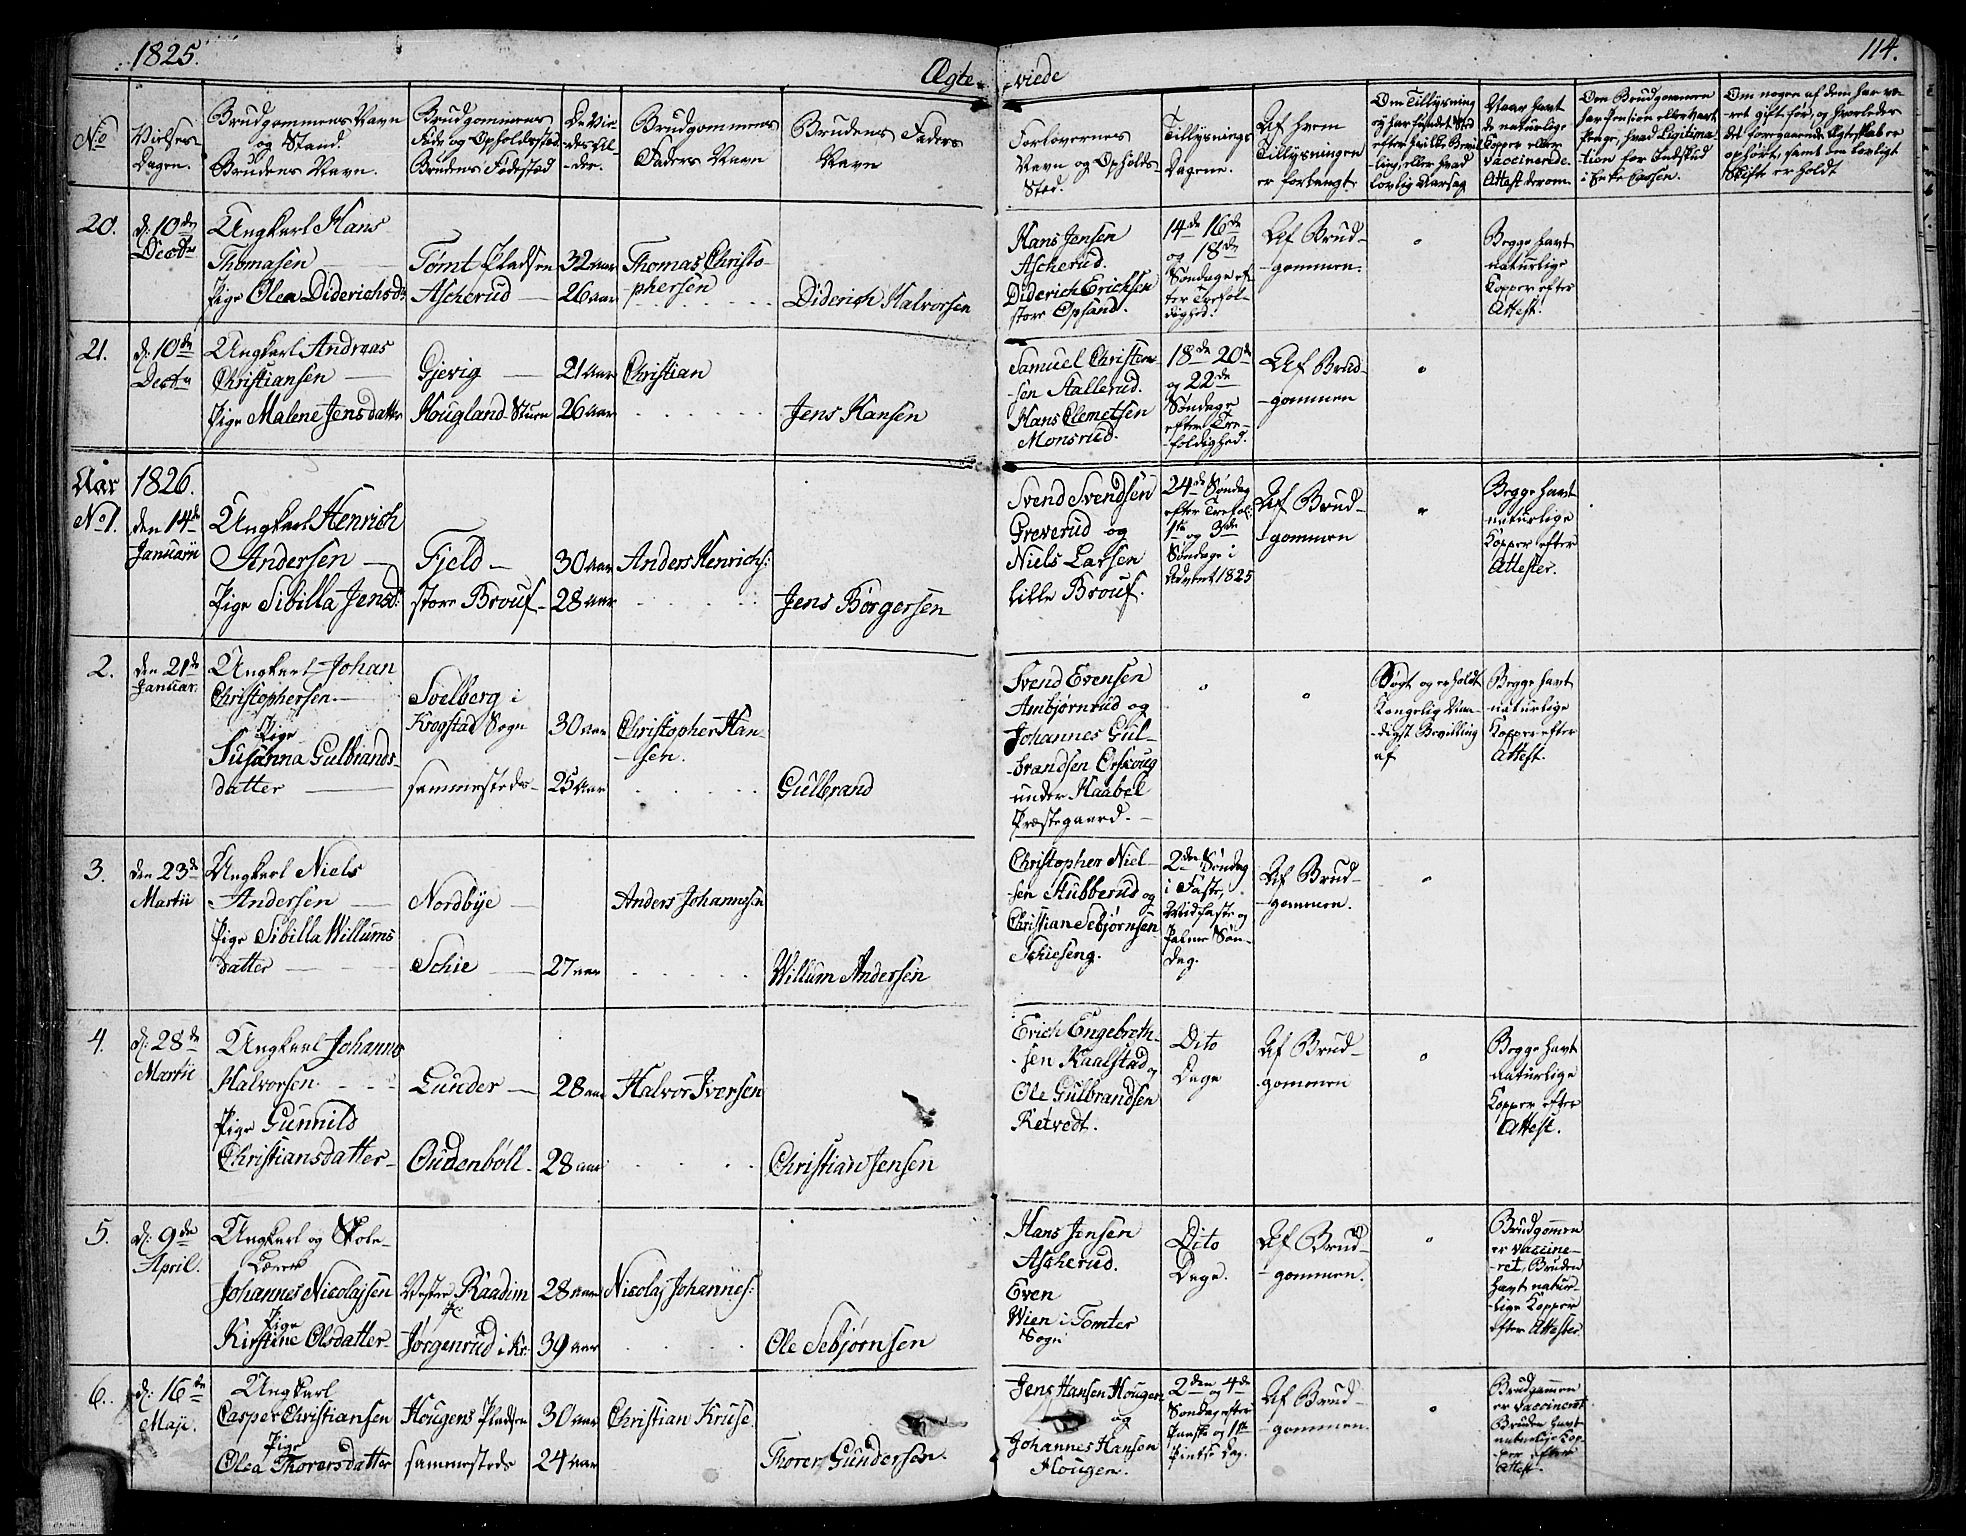 1825.
Ægte-
viede
114.
No
Vielses
Dagen.
Brudgommens Navn
og Stand.
Brudens Navn.
Brudgommens
Føde og Opholdssted
Brudens Fødested
De Vie-
des Al-
der.
Brudgommens
Faders Navn
Brudens Faders
Navn
Forlovernes
Navn og Opholds-
Sted.
Tillysnings
Dagene.
Af hvem
Tillysningen
er forlangt.
Om Tillysning
ey har fundet Sted
efter hvilke Bevil
ling eller hvad
lovlig Aarsag
Naar havt
de naturlige
Kopper eller
Vaccinerede.
Attest derom.
Om Brudgommen
har Pension eller havt
Penge, hvad Legitima
tion for Indskud
i Enke Cassen.
Om nogen af dem har væ
ret gift før, og hvorledes
det foregaaende Ægteskab er
ophørt, samt om lovligt
Skifte er holdt
20.
d: 10de
Decbr
Ungkarl Hans
Thomasen
Pige Olea Diderichsd:
Tømt Pladsen
Ascherud
32 aar
26 aar
Thomas Christo-
phersen
Diderich Halvorsen
Hans Jensen
Ascherud.
Diderich Erichsen
store Opsand.
14de 16de
og 18de
Søndage ef-
ter Trefol-
dighed.
Af Brud-
-gommen.
Begge havt
naturlige
Kopper efter
Attest.
21.
d: 10de
Decbr
Ungkarl Andreas
Christiansen
Pige Malene Jensdatter
Gjevig
Hougland Stuen
21 aar
26 aar
Christian
Jens Hansen
Samuel Christen-
sen Stallerud.
Hans Clemetsen
Monsrud.
18de 20de
og 22de
Søndage
efter Tre-
foldighed.
Af Brud-
-gommen
Aar 1826.
No 1.
den 14de
Januarii
Ungkarl Henrich
Andersen
Pige Sibilla Jensd:
Fjeld
store Brouf
30 aar
28 aar
Anders Henrichs:
Jens Børgersen
Svend Svendsen
Greverud og
Niels Larsen
lille Brouf.
24de Søndag
efter Trefol:
1ste og 3de
Søndage i
Advent 1825
Af Brud-
-gommen
Begge havt
naturlige
Kopper efter
Attester.
2.
den 21de
Januar.
Ungkarl Johan
Christophersen
Pige
Susanna Gulbrands-
datter
Svelberg i
Krogstad Sogn
sammesteds
30 aar
25 aar
Christopher Han-
-sen.
Gulbrand
Svend Evensen
Ambjørnrud og
Johannes Gul-
brandsen Erskoug
under Haabøl
Præstegaard.
Søgt og erholdt
Kongelig Naa-
digst Bevilling
af
Begge havt
naturlige
Kopper efter
Attest.
3.
den 23de
Martii
Ungkarl Niels
Andersen
Pige Sibilla Willums
datter
Nordbye
Schie
27 aar
Anders Johannesen
Willum Andersen
Christopher Niel-
sen Stubberud og
Christian Sebjørnsen
Schieseng.
2den Søndag
i Faste,
Midfaste og
Palme Søn-
dag.
Af Brud-
-gommen.
4.
d: 28de
Martii
Ungkarl Johannes
Halvorsen.
Pige Gunnild
Christiansdatter
Lunder
Oudenbøll
28 aar
28 aar
Halvor Iversen
Christian Jensen
Erich Engebreth-
sen Kaalstad og
Ole Gulbrandsen
Retvedt.
Dito
Dage
Af Brud-
gommen
Begge havt
naturlige
Kopper efter
Attest.
5.
d: 9de
April.
Ungkarl og Skole-
Lærer
Johannes Nicolajsen
Pige
Kirstine Olsdatter
Vestre Raadim
Jørgenrud i Kr:
28 aar
39 aar
Nicolaj Johannes:
Ole Sebjørnsen
Hans Jensen
Ascherud.
Even
Wien i Tomter
Sogn
Dito
Dage.
Af Brud-
-gommen.
Brudgommen
er vaccine-
ret, Bruden
havt natur-
lige Kopper
efter Attester
6.
d: 16de
Maji.
Ungkarl
Casper Christiansen
Pige
Olea Thorersdatter
Hougens Pladsen
sammesteds
30 aar
24 aar
Christian Kruse.
Thorer Gundersen.
Jens Hansen Hougen
og
Johannes Hansen
Hougen.
2den og 4de
Søndag efter
Paaske og 1ste
Pintse Dag.
Af Brud-
-gommen.
Brudgommen
er vaccineret
Bruden havt
naturlige Kop-
per efter
Attest.